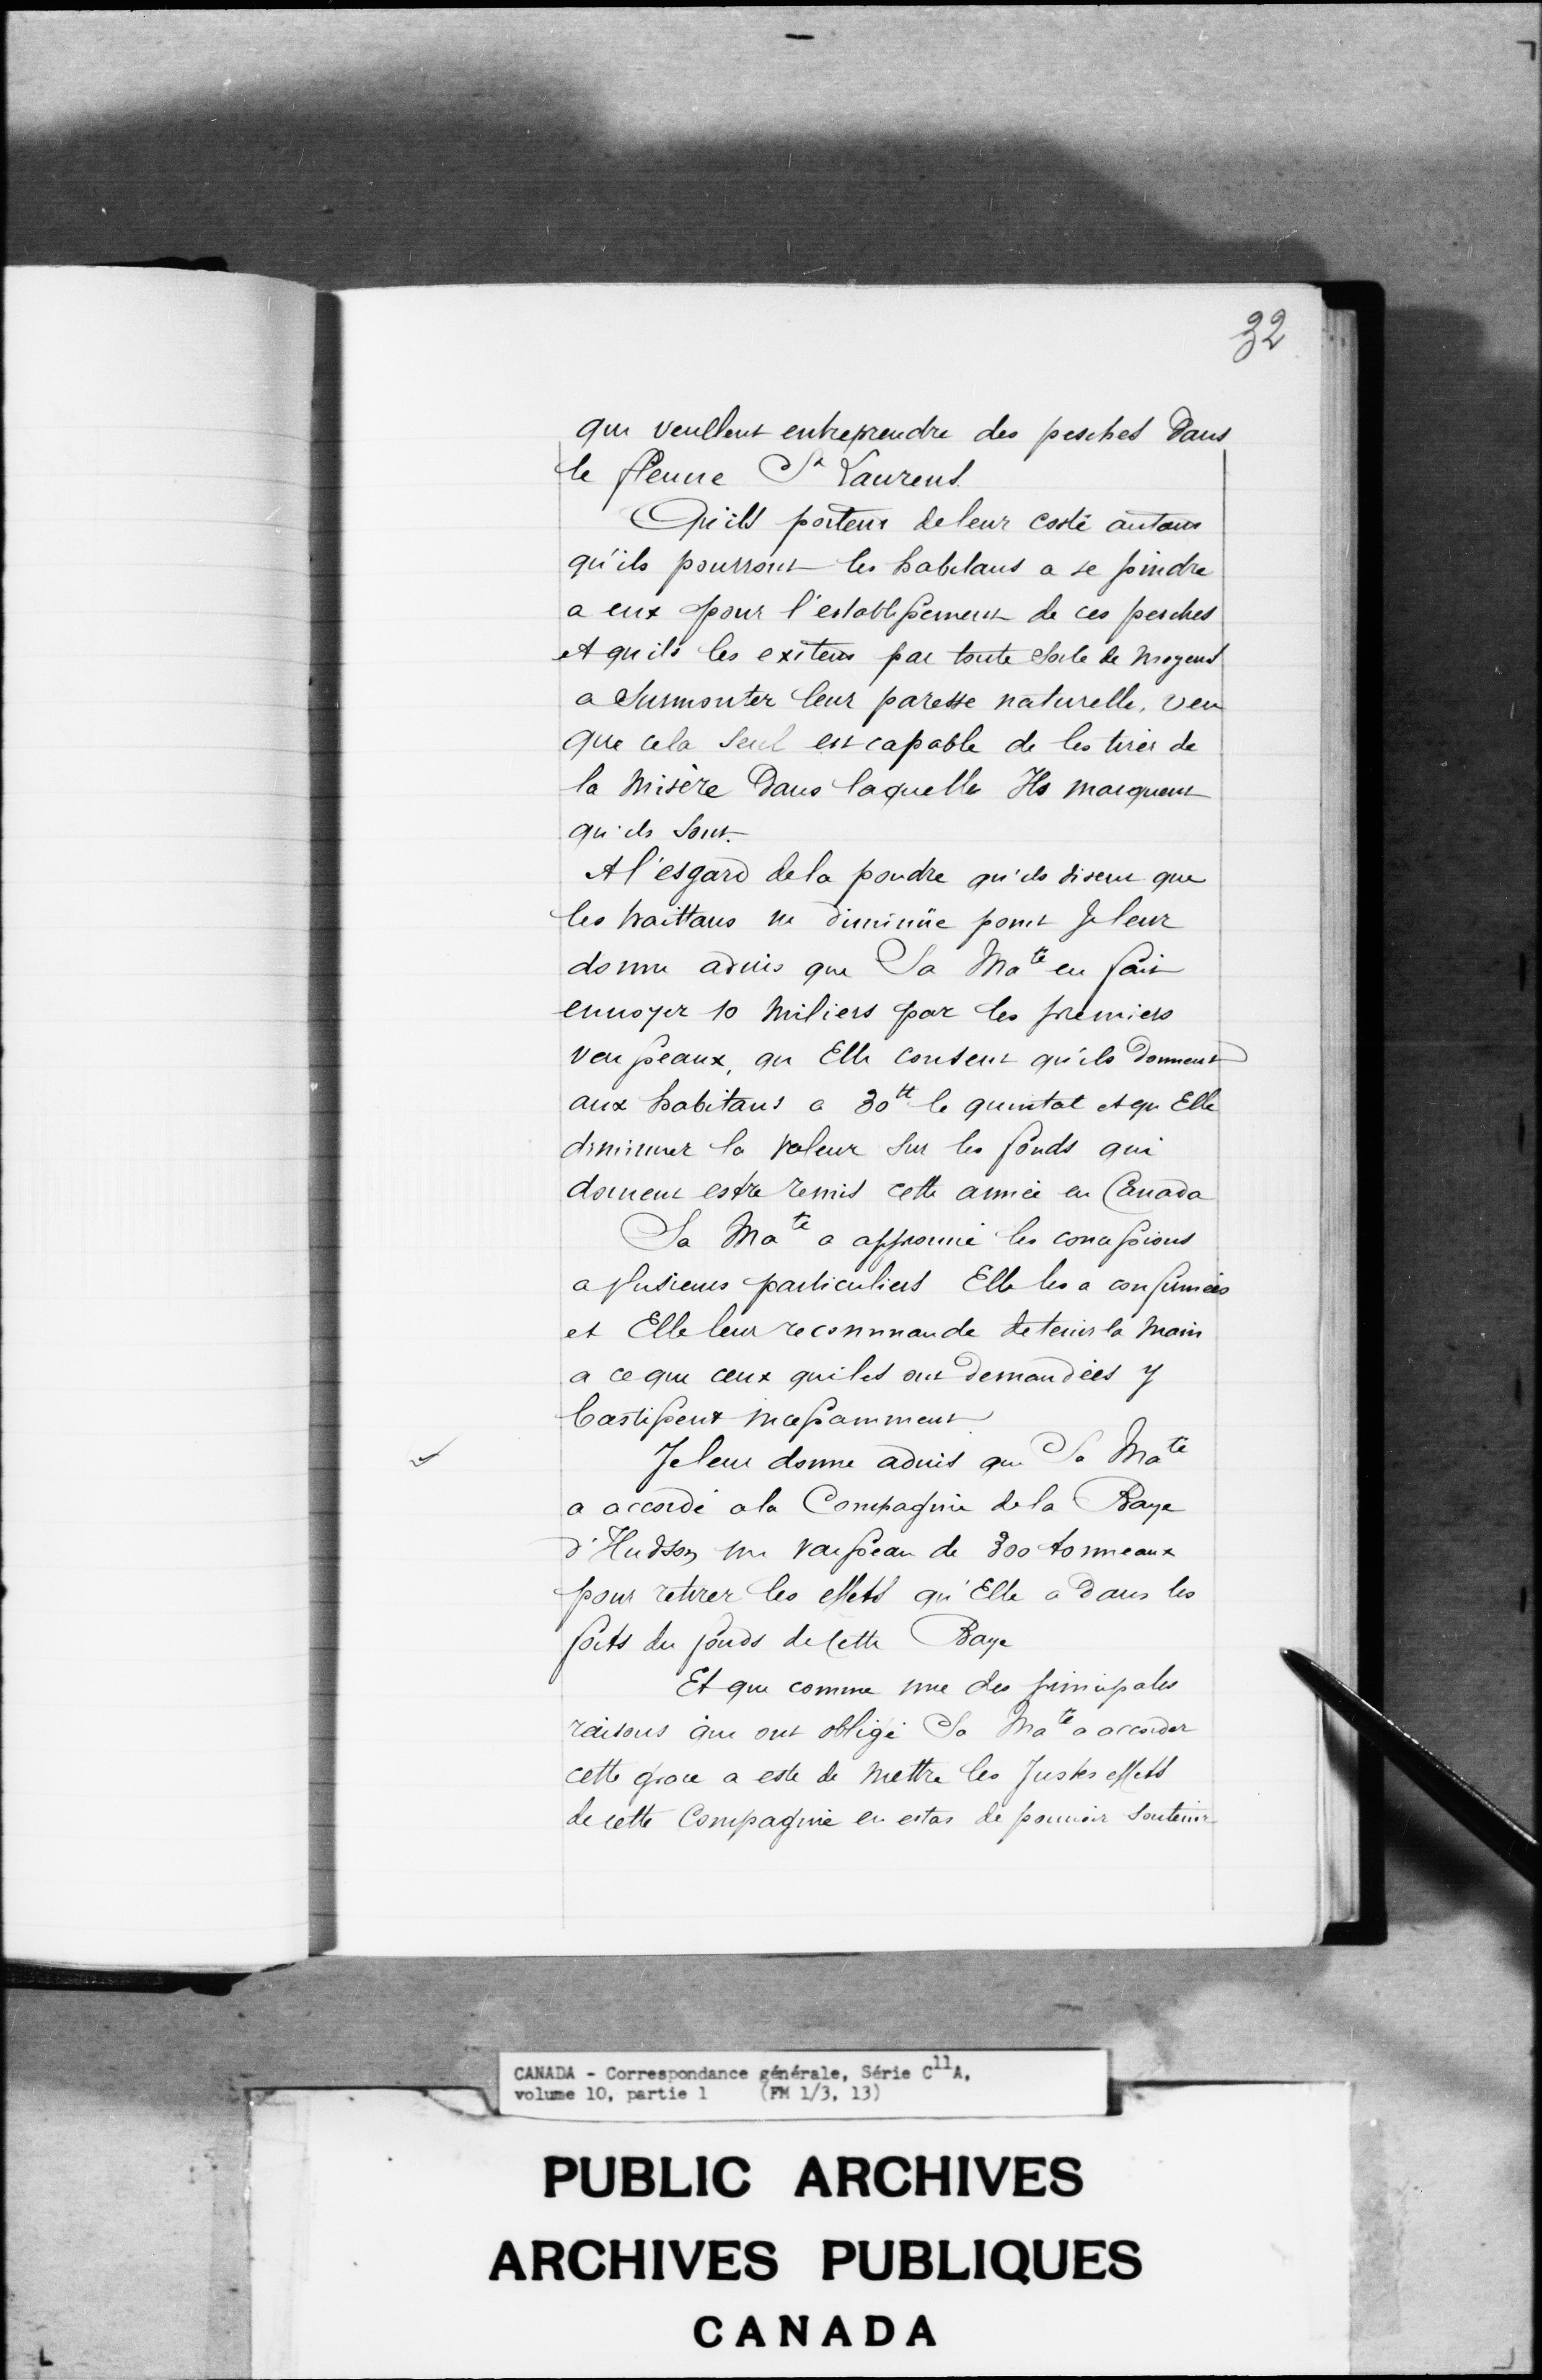 32
qui veullent entreprendre des pesches dans
le fleuue St Laurens
Qu'ils portent de leur costé autant
qu'ils pourront les habitans a se joindre
a eux pour l'establissement de ces pesches
et qu'ils les exitent par toute sorte de moyens
a surmonter leur paresse naturelle, veu
que cela seul est capable de les tirer de
la misère dans laquelle Ils marquent
qu'ils sont.
A l'esgard de la poudre qu'ils disent que
les traittans ne diminüe point Je leur
donne aduis que Sa Maté en fait
enuoyer 10 miliers par les premiers
vaisseaux, qu Elle consent qu'ils donnent
aux habitans a 30tt le quintal et qu Elle
diminuer la valeur sur les fonds qui
doiuent estre remis cette année en Canada
Sa Maté a approuué les concessions
a plusieurs particuliers Elle les a confirmées
et Elle leur recommande de tenir la main
a ce que ceux qui les ont demandées y
bastissent incessamment
Je leur donne aduis que Sa Maté
a accordé a la Compagnie de la Baye
d'Hudson un vaisseau de 300 tonneaux
pour retirer les effets qu'Elle a dans les
forts du fonds de cette Baye
Et que comme une des principales
raisons qui ont obligé Sa Maté a accorder
cette grace a esté de mettre les Justes effets
de cette Compagnie en estat de pouuoir soutenir
CANADA - Correspondance générale, Série C11A,
volume 10, partie 1 (FM 1/3, 13)
PUBLIC ARCHIVES
ARCHIVES PUBLIQUES
CANADA